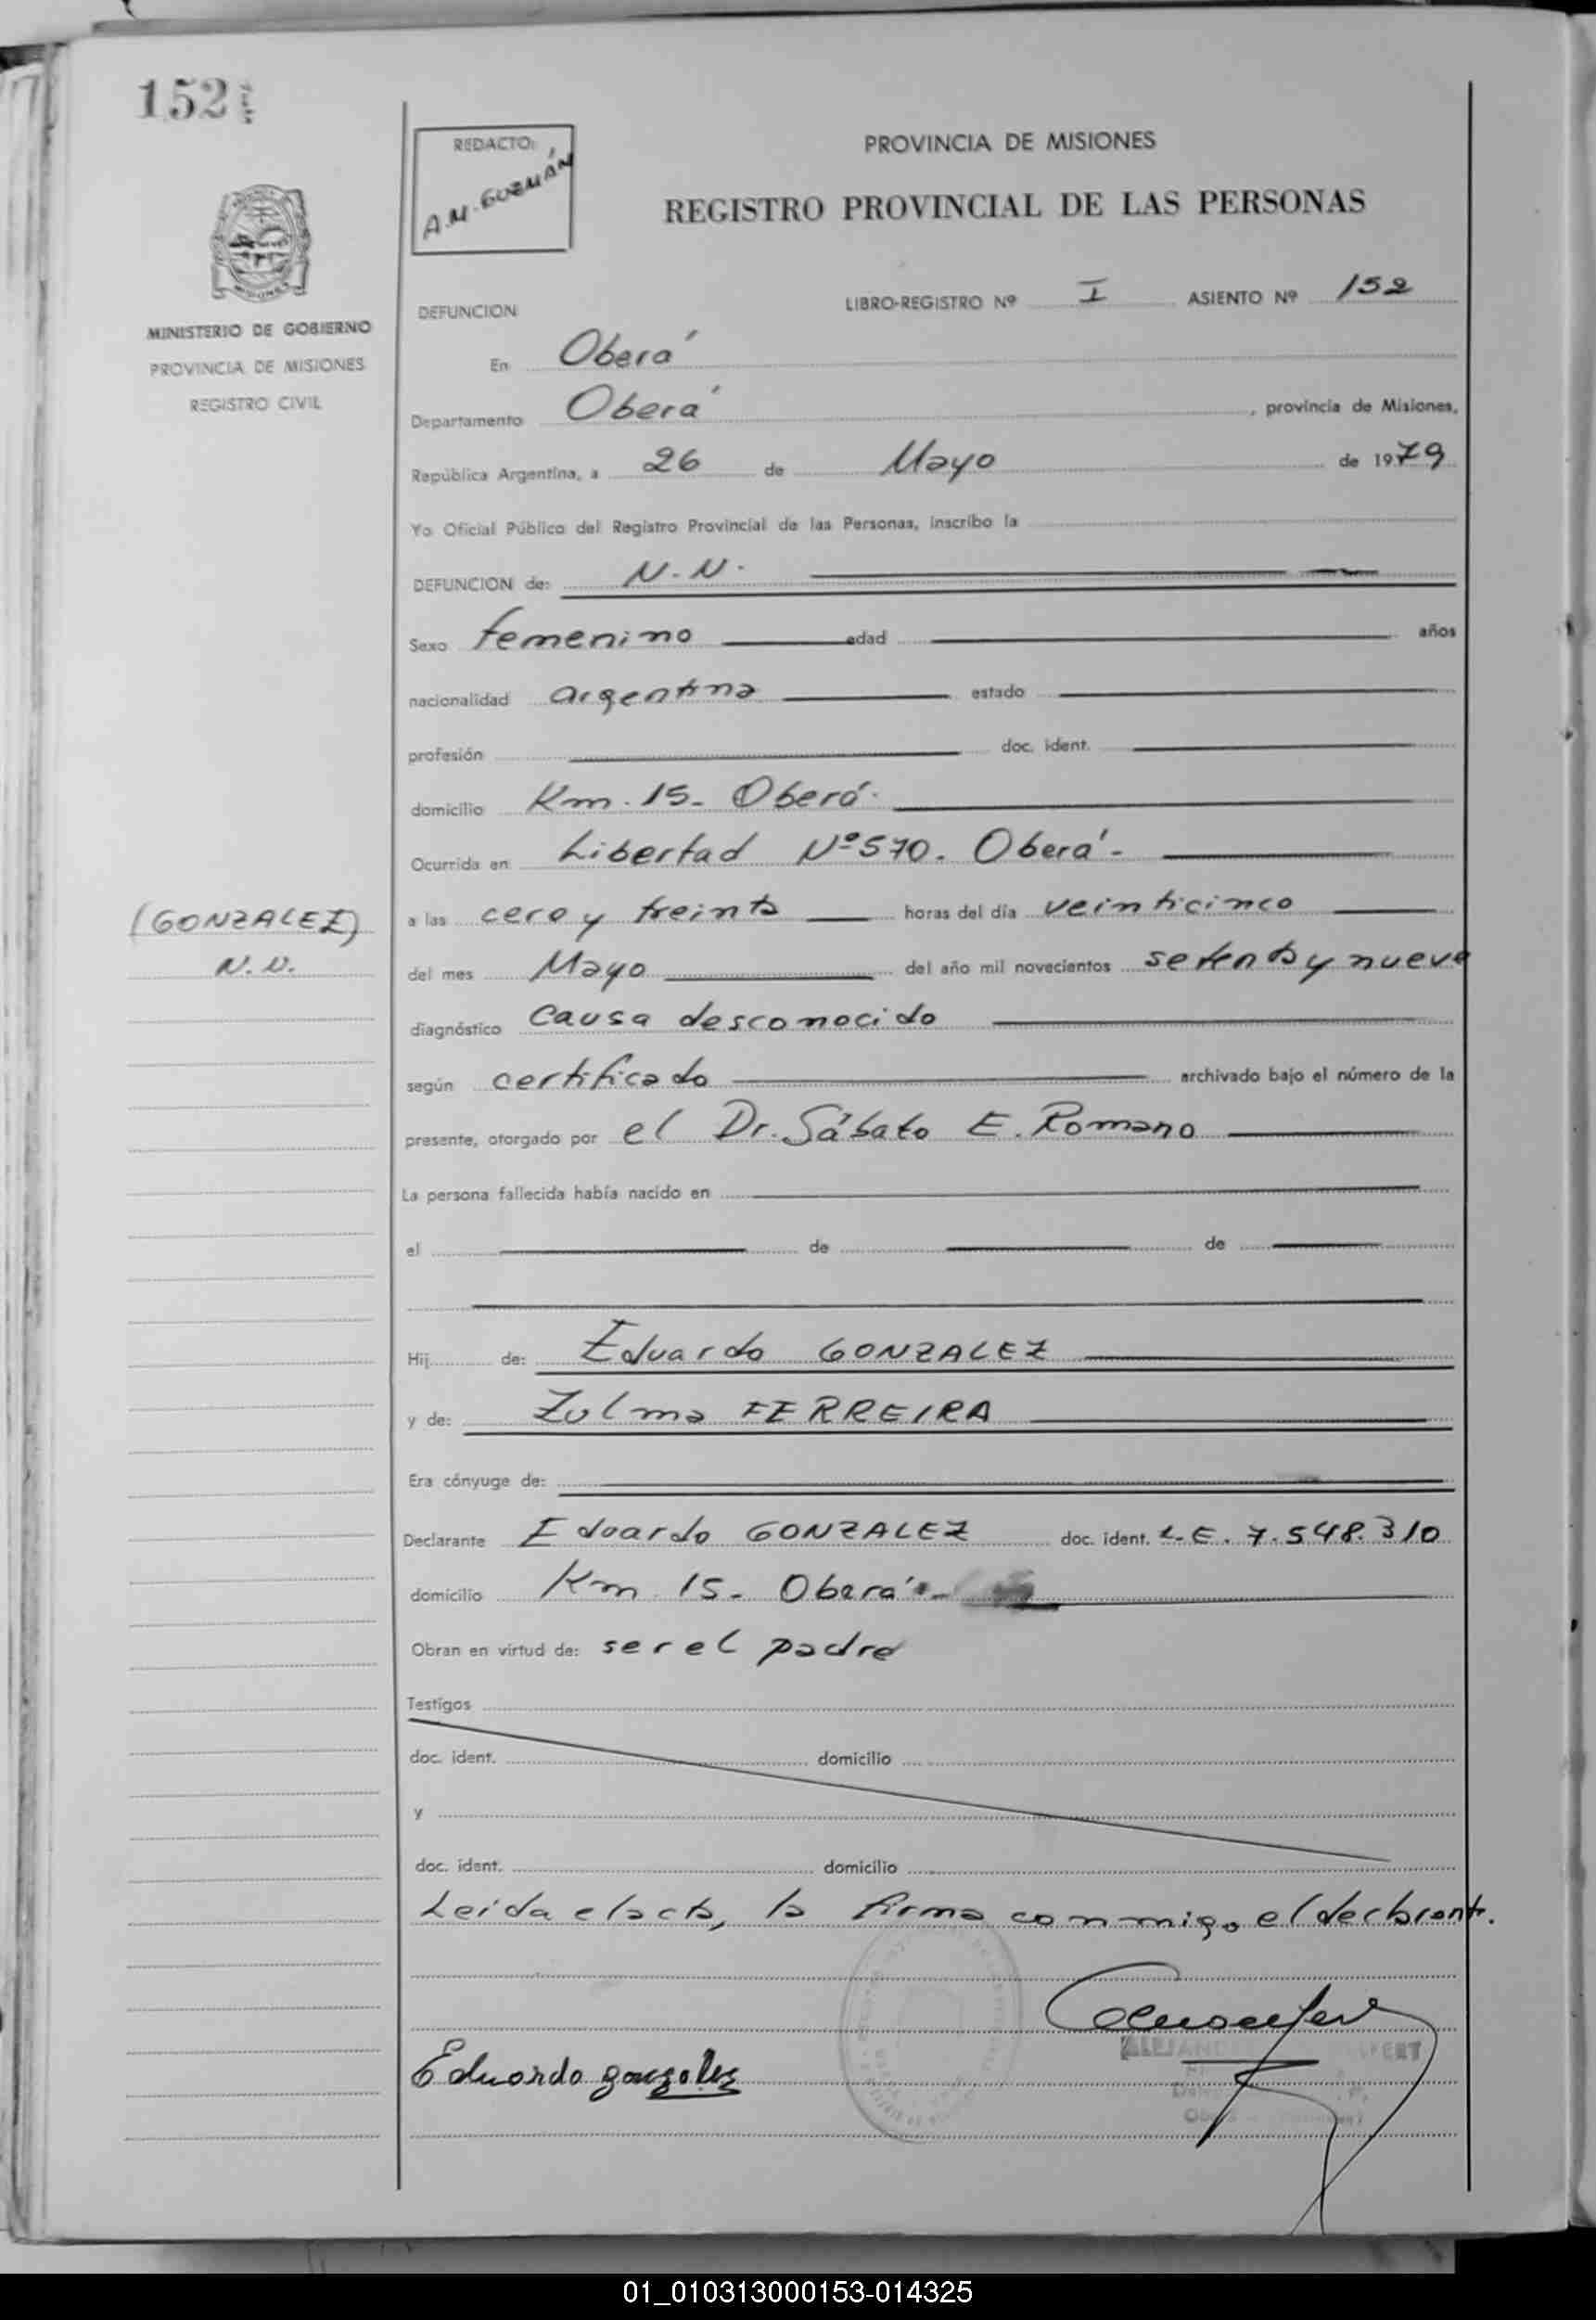 152
REDACTO:
A.M.GUZMÁN
PROVINCIA DE MISIONES
REGISTRO PROVINCIAL DE LAS PERSONAS
MISIONES
MINISTERIO DE GOBIERNO
PROVINCIA DE MISIONES
REGISTRO CIVIL
DEFUNCION
LIBRO-REGISTRO Nº I ASIENTO Nº 152
En Oberá
Departamento Oberá, provincia de Misiones,
República Argentina, a 26 de Mayo de 1979
Yo Oficial Público del Registro Provincial de las Personas, inscribo la
DEFUNCION de: N.N.
Sexo femenino edad años
nacionalidad argentina estado
profesión doc. ident.
domicilio Km. 15- Oberá.
Ocurrida en Libertad Nº570. Oberá-
(GONZALEZ)
N.N.
a las cero y treinta horas del día veinticinco
del mes Mayo del año mil novecientos setenta y nueve
diagnóstico causa desconocido
según certificado archivado bajo el número de la
presente, otorgado por el Dr. Sábato E. Romano
La persona fallecida había nacido en
el de de
Hij de: Eduardo GONZALEZ
y de: Zulma FERREIRA
Era cónyuge de:
Declarante Eduardo GONZALEZ doc. ident. L.E. 7.548.310
domicilio Km 15- Oberá-
Obran en virtud de: ser el padre
Testigos
doc. ident. domicilio
y
doc. ident. domicilio
Leída el acta, la firma conmigo el declarante.
Eduardo gonzalez
01_010313000153-014325